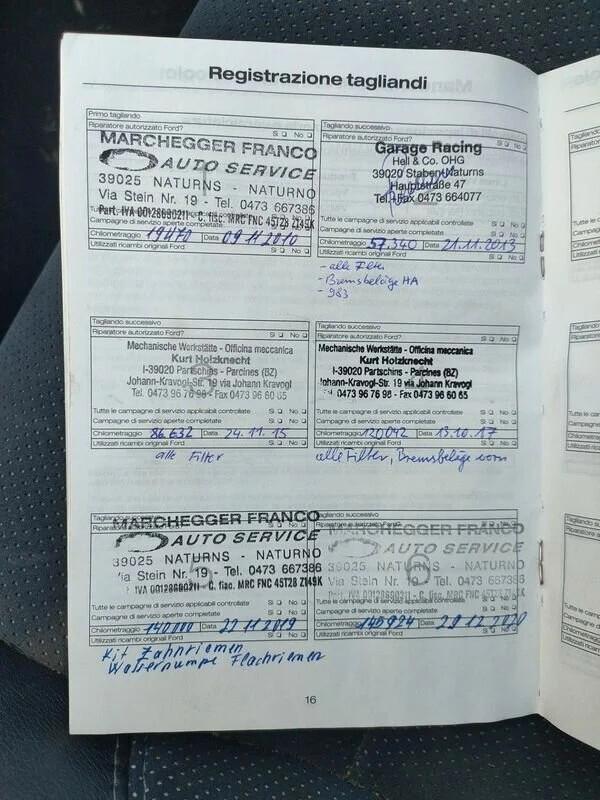 Registrazione tagliandi
Primo tagliando
Riparatore autorizzato Ford? Sì No
MARCHEGGER FRANCO
AUTO SERVICE
39025 NATURNS - NATURNO
Via Stein Nr. 19 - Tel. 0473 667386
Part. IVA 00128690211 - C. fisc. MRC FNC 45T28 Z149K
Campagne di servizio aperte completate
Chilometraggio Data 09 11 2010
Utilizzati ricambi original Ford Sì No
Tagliando successivo
Riparatore autorizzato Ford? Sì No
Garage Racing
Hell & Co. OHG
39020 Staben-Naturns
Hauptstraße 47
Tel. + Fax 0473 664077
Tutte le campagne di servizio applicabili controllate
Campagne di servizio aperte completate
Chilometraggio 57.340 Data 21.11.2013
Utilizzati ricambi original Ford Sì No
- alle Filter
- Bremsbeläge HA
- 983
Tagliando successivo
Riparatore autorizzato Ford? Sì No
Mechanische Werkstätte - Officina meccanica
Kurt Holzknecht
I-39020 Partschins - Parcines (BZ)
Johann-Kravogl-Str. 19 via Johann Kravogl
Tel. 0473 96 76 98 - Fax 0473 96 60 65
Tutte le campagne di servizio applicabili controllate Sì No
Campagne di servizio aperte completate Sì No
Chilometraggio 86.632 Data 24.11.15
Utilizzati ricambi original Ford Sì No
alle Filter
Tagliando successivo
Riparatore autorizzato Ford? Sì No
Mechanische Werkstätte - Officina meccanica
Kurt Holzknecht
I-39020 Partschins - Parcines (BZ)
Johann-Kravogl-Str. 19 via Johann Kravogl
Tel. 0473 96 76 98 - Fax 0473 96 60 65
Tutte le campagne di servizio applicabili controllate Sì No
Campagne di servizio aperte completate Sì No
Chilometraggio 120042 Data 13.10.17
Utilizzati ricambi original Ford Sì No
alle Filter, Bremsbeläge vorn
MARCHEGGER FRANCO
AUTO SERVICE
39025 NATURNS - NATURNO
Via Stein Nr. 19 - Tel. 0473 667386
P. IVA 00128690211 - C. fisc. MRC FNC 45T28 Z149K
Tutte le campagne di servizio applicabili controllate Sì No
Campagne di servizio aperte completate Sì No
Chilometraggio 140000 Data 22 11 2019
Utilizzati ricambi original Ford Sì No
Kit Zahnriemen
Wasserpumpe Flachriemen
Tagliando successivo
MARCHEGGER FRANCO
AUTO SERVICE
39025 NATURNS - NATURNO
Via Stein Nr. 19 - Tel. 0473 667386
Tutte le campagne di servizio applicabili controllate Sì No
Campagne di servizio aperte completate Sì No
Chilometraggio 145924 Data 2020
Utilizzati ricambi original Ford Sì No
16